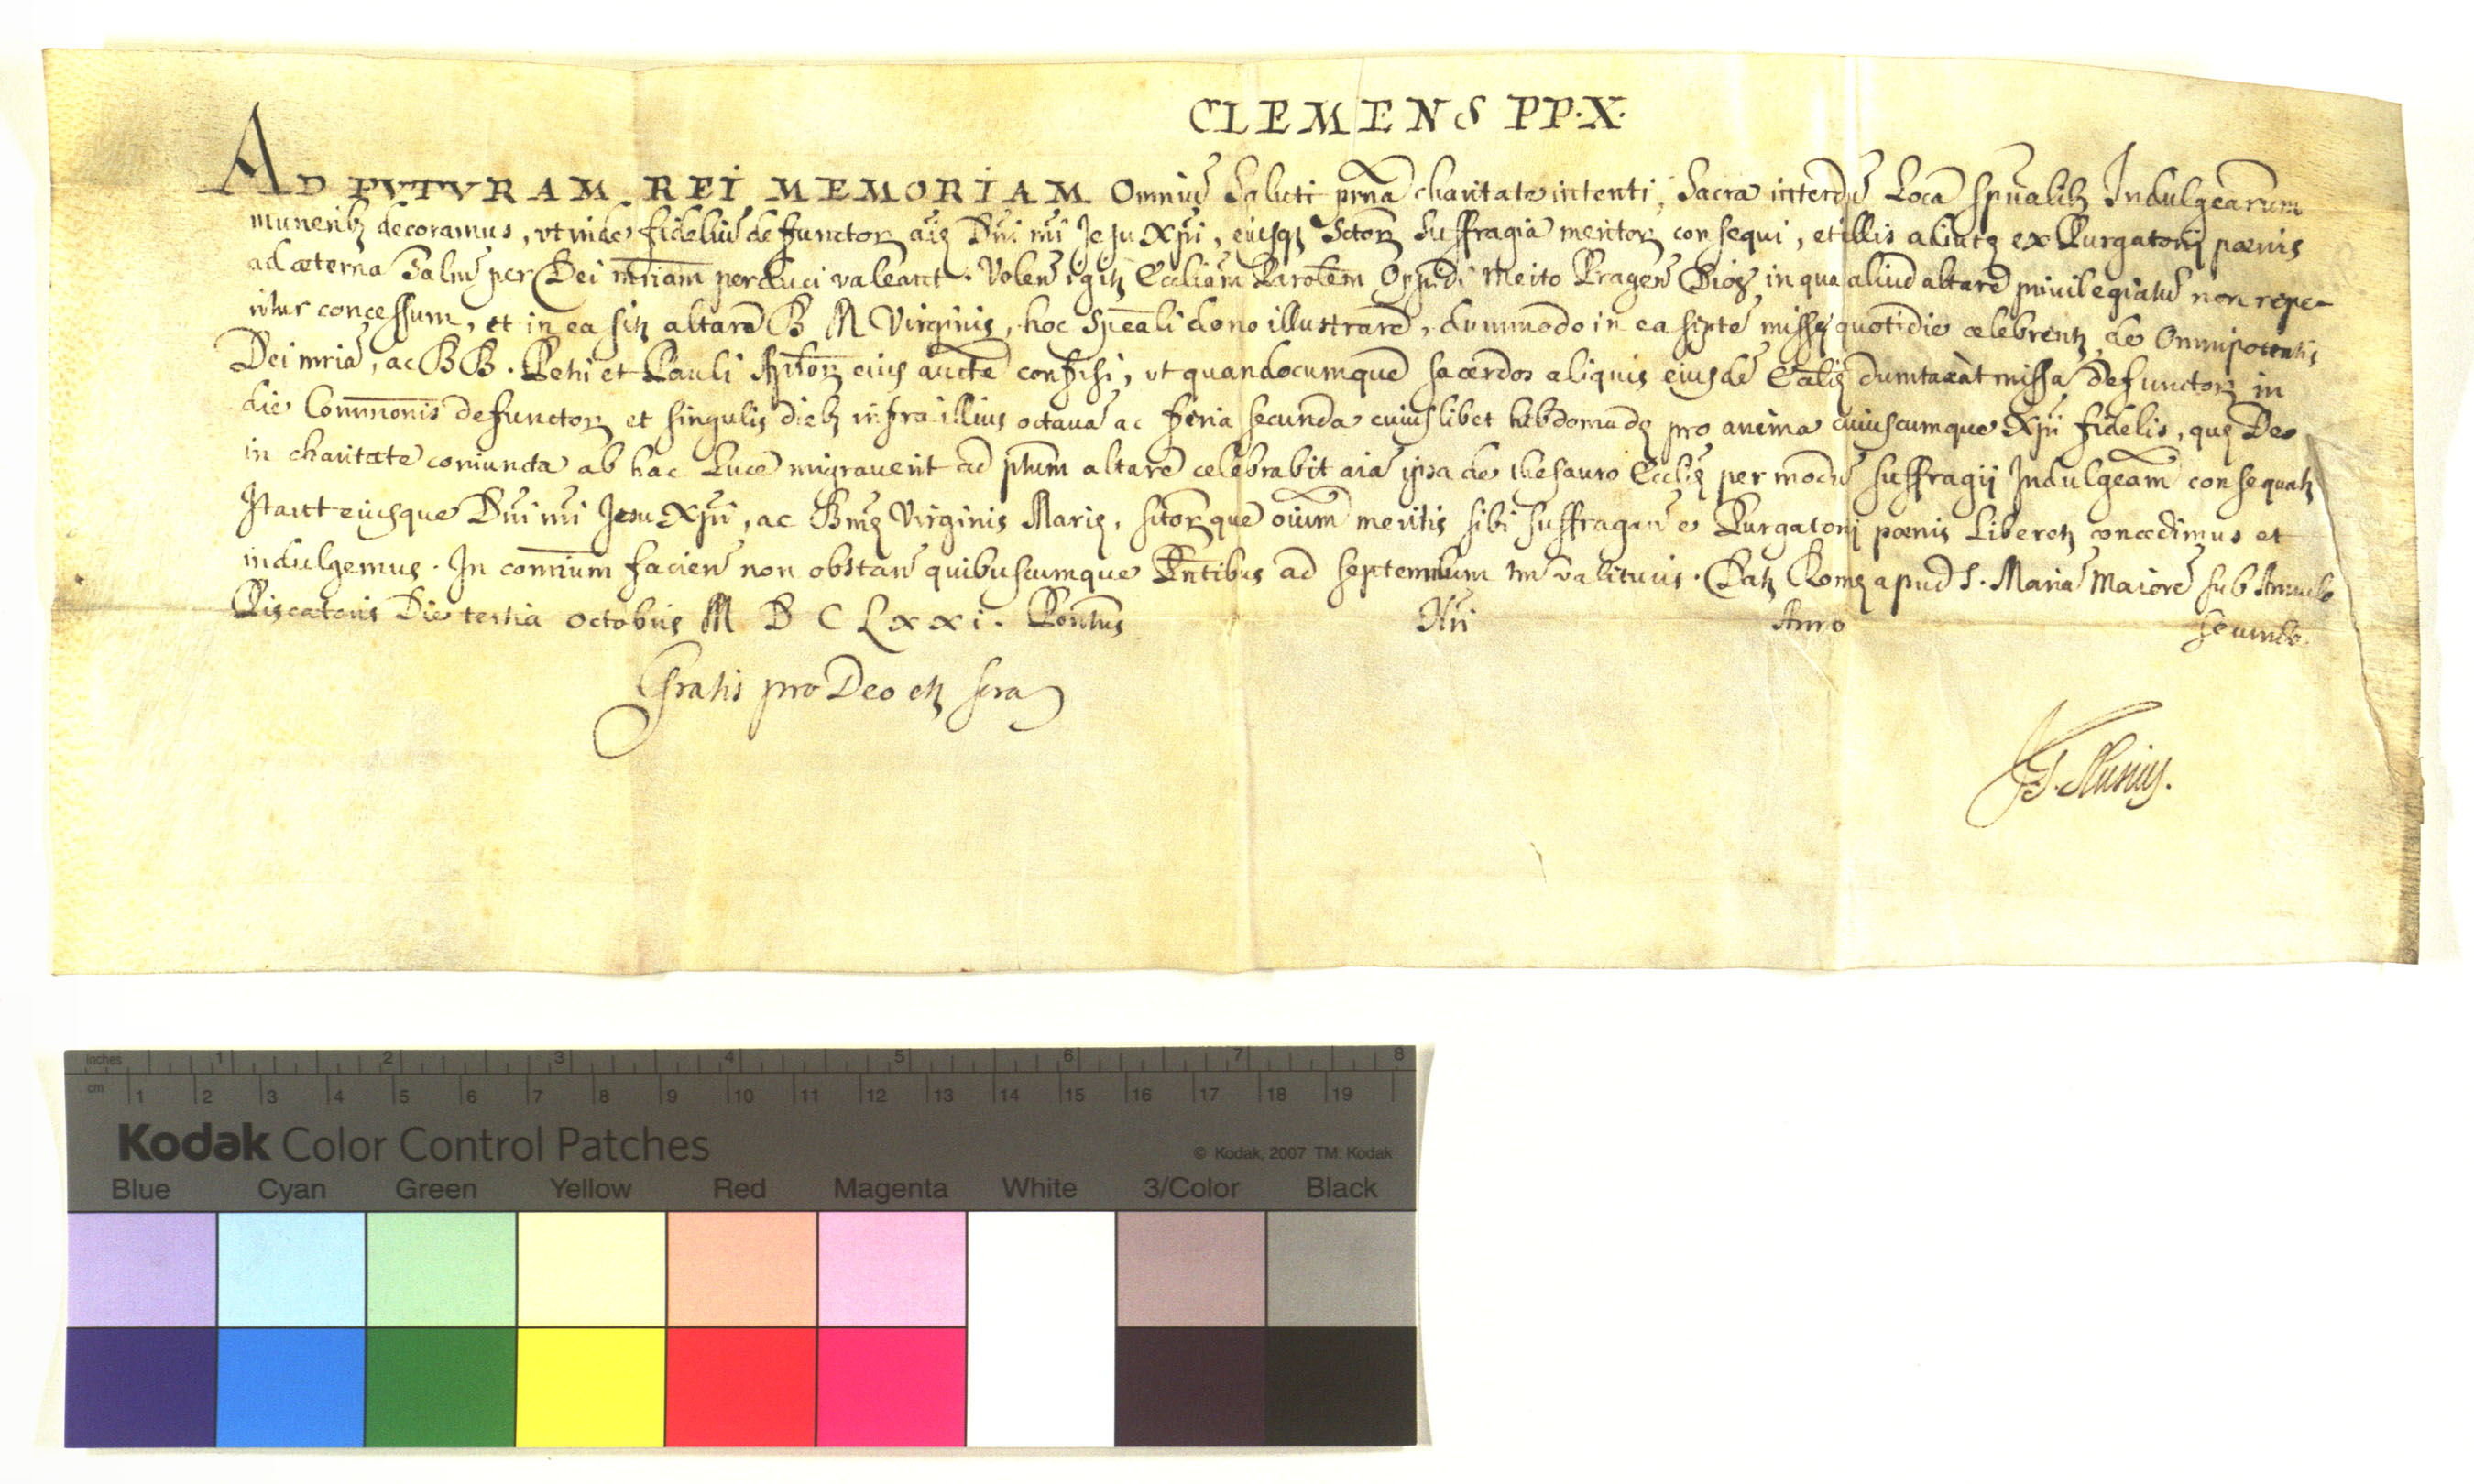 CLEMENS PP. X.
AD FVTVRAM REI MEMORIAM Omniũ Saluti prñâ charitate intenti, Sacra interdũ Loca spũalibꝫ Indulgẽarum
muneribꝫ decoramus, vt inde fideliũ defunctoꝝ aĩę Dñi ñri Jesu Xp̃i, eiusqꝫ Sctõꝝ suffragia meritoꝝ consequi, et illis adiutę ex Purgatorij pœnis
ad æternã Salũe per Dei m̃riam perduci valeant. Volen̄ igitꝫ Eccliam Parõlem Oppidi Meito Pragen̄ Diõę, in qua aliud altare priuilegiatũ non repe-
ritur concessum, et in ea sitꝫ altare B M Virginis, hoc speãli dono illustrare, dummodo in ea septẽ missę quotidie celebrentꝫ, de Omnipotentis
Dei m̃ria, ac BB. Petri et Pauli Aplõꝝ eius auctẽ confisi, vt quandocumque sacerdos aliquis eiusdẽ Eccl̃ię dumtaxat missã defunctoꝝ in
die Com̃monis defunctoꝝ et singulis diebꝫ infra illius octauã ac feria secunda cuiuslibet hebdomadę pro anima cuiuscumque Xp̃i fidelis, quę Deo
in charitate coniuncta ab hac Luce migrauerit ad p̃tum altare celebrabit aĩa ipsa de thesauro Eccl̃ię per modũ suffragij Indulgeãm consequatꝫ
Itaut eiusque Dñi ñri Jesu Xp̃i, ac Bm̃ę Virginis Marię, sctõꝝque oĩum meritis sibi suffragan̄ e Purgatorij pœnis Liberetꝫ concedimus et
indulgemus. In con̄rium facien̄ non obstan̄ quibuscumque Pñtibus ad septennium tm̃ valituris. Datꝫ Romę apud S. Mariã Maiorẽ sub Annulo
Piscatoris Die tertia octobris M D C L x x i. Pontũs Ñri Anno Secundo.
Gratis pro Deo etꝫ scra
J. G. Slusius.
inches 1 2 3 4 5 6 7 8
cm 1 2 3 4 5 6 7 8 9 10 11 12 13 14 15 16 17 18 19
Kodak Color Control Patches
© Kodak, 2007 TM: Kodak
Blue Cyan Green Yellow Red Magenta White 3/Color Black